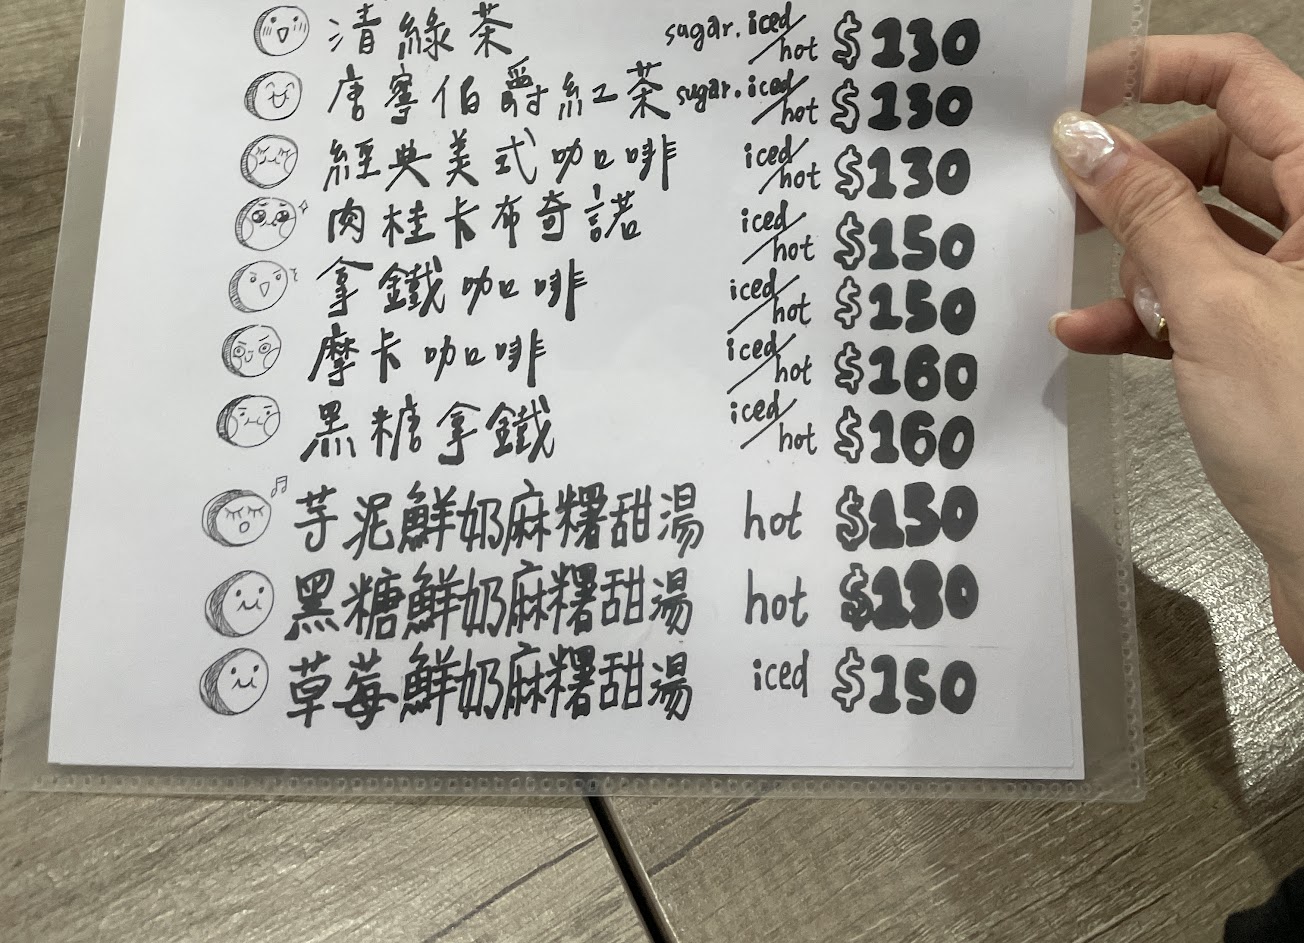 清綠茶 sugar. iced/hot $130
唐寧伯爵紅茶 sugar. iced/hot $130
經典美式咖啡 iced/hot $130
肉桂卡布奇諾 iced/hot $150
拿鐵咖啡 iced/hot $150
摩卡咖啡 iced/hot $160
黑糖拿鐵 iced/hot $160
芋泥鮮奶麻糬甜湯 hot $150
黑糖鮮奶麻糬甜湯 hot $130
草莓鮮奶麻糬甜湯 iced $150